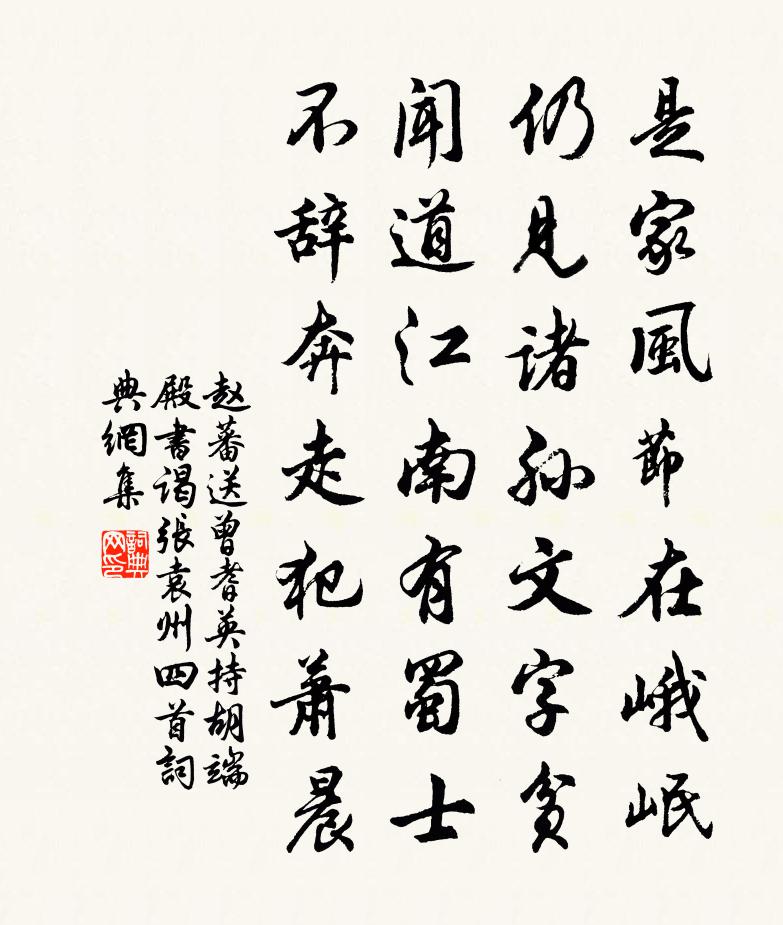 是家風節在峨岷
仍見諸孫文字貧
聞道江南有蜀士
不辞奔走犯蕭晨
赵蕃送曾耆英持胡端
殿書谒張袁州四首詞
典網集
詞典网印